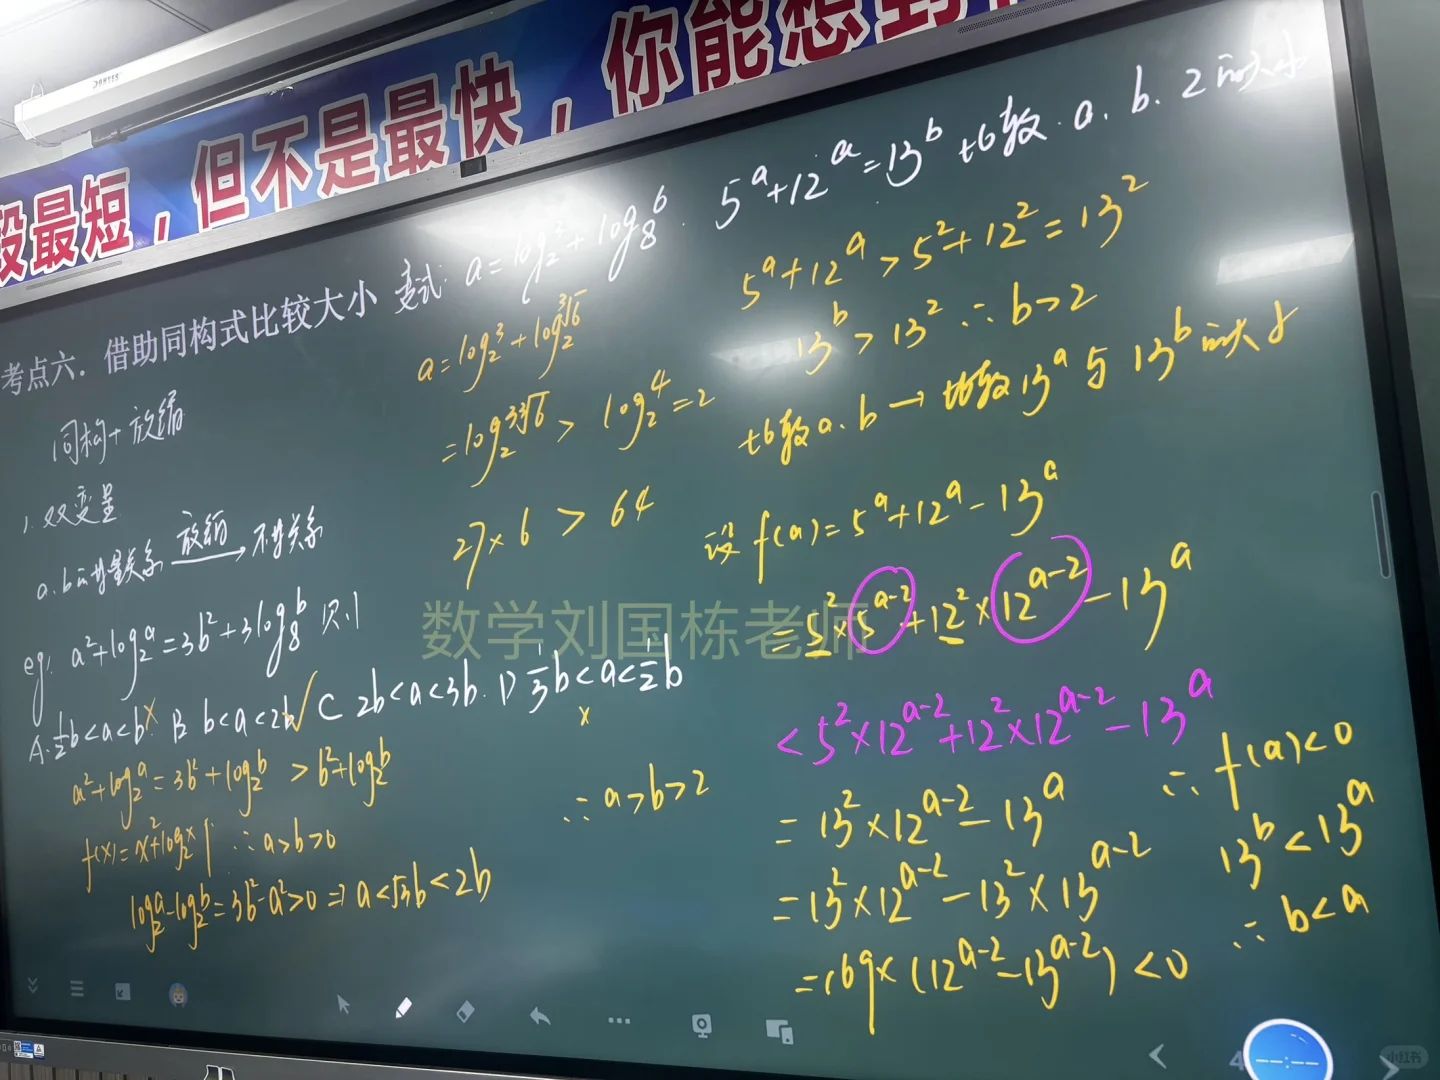 段最短，但不是最快，你能想到
DONYES
考点六．借助同构式比较大小
变式: a=log₂3+log₈6. 5^a+12^a=13^b 比较.a、b、2的大小
同构+放缩
1.双变量
a.b的等量关系 放缩→ 不等关系
eg: a²+log₂a=3b²+3log₈b 则.
A.½b<a<b × B b<a<2b √ C 2b<a<3b. D ⅓b<a<½b ×
a²+log₂a=3b²+log₂b >b²+log₂b
f(x)=x²+log₂x ∴a>b>0
log₂a-log₂b=3b²-a²>0 ⇒ a<√3b<2b
a=log₂3+log₂∛6
=log₂3∛6 > log₂4=2
27×6 > 64
∴a>b>2
5^a+12^a>5²+12²=13²
13^b>13² ∴b>2
比较a.b→比较13^a与13^b的大小
设f(a)=5^a+12^a-13^a
=5²×5^(a-2)+12²×12^(a-2)-13^a
<5²×12^(a-2)+12²×12^(a-2)-13^a
=13²×12^(a-2)-13^a
=13²×12^(a-2)-13²×13^(a-2)
=169×(12^(a-2)-13^(a-2))<0
∴f(a)<0
13^b<13^a
∴b<a
数学刘国栋老师
小红书